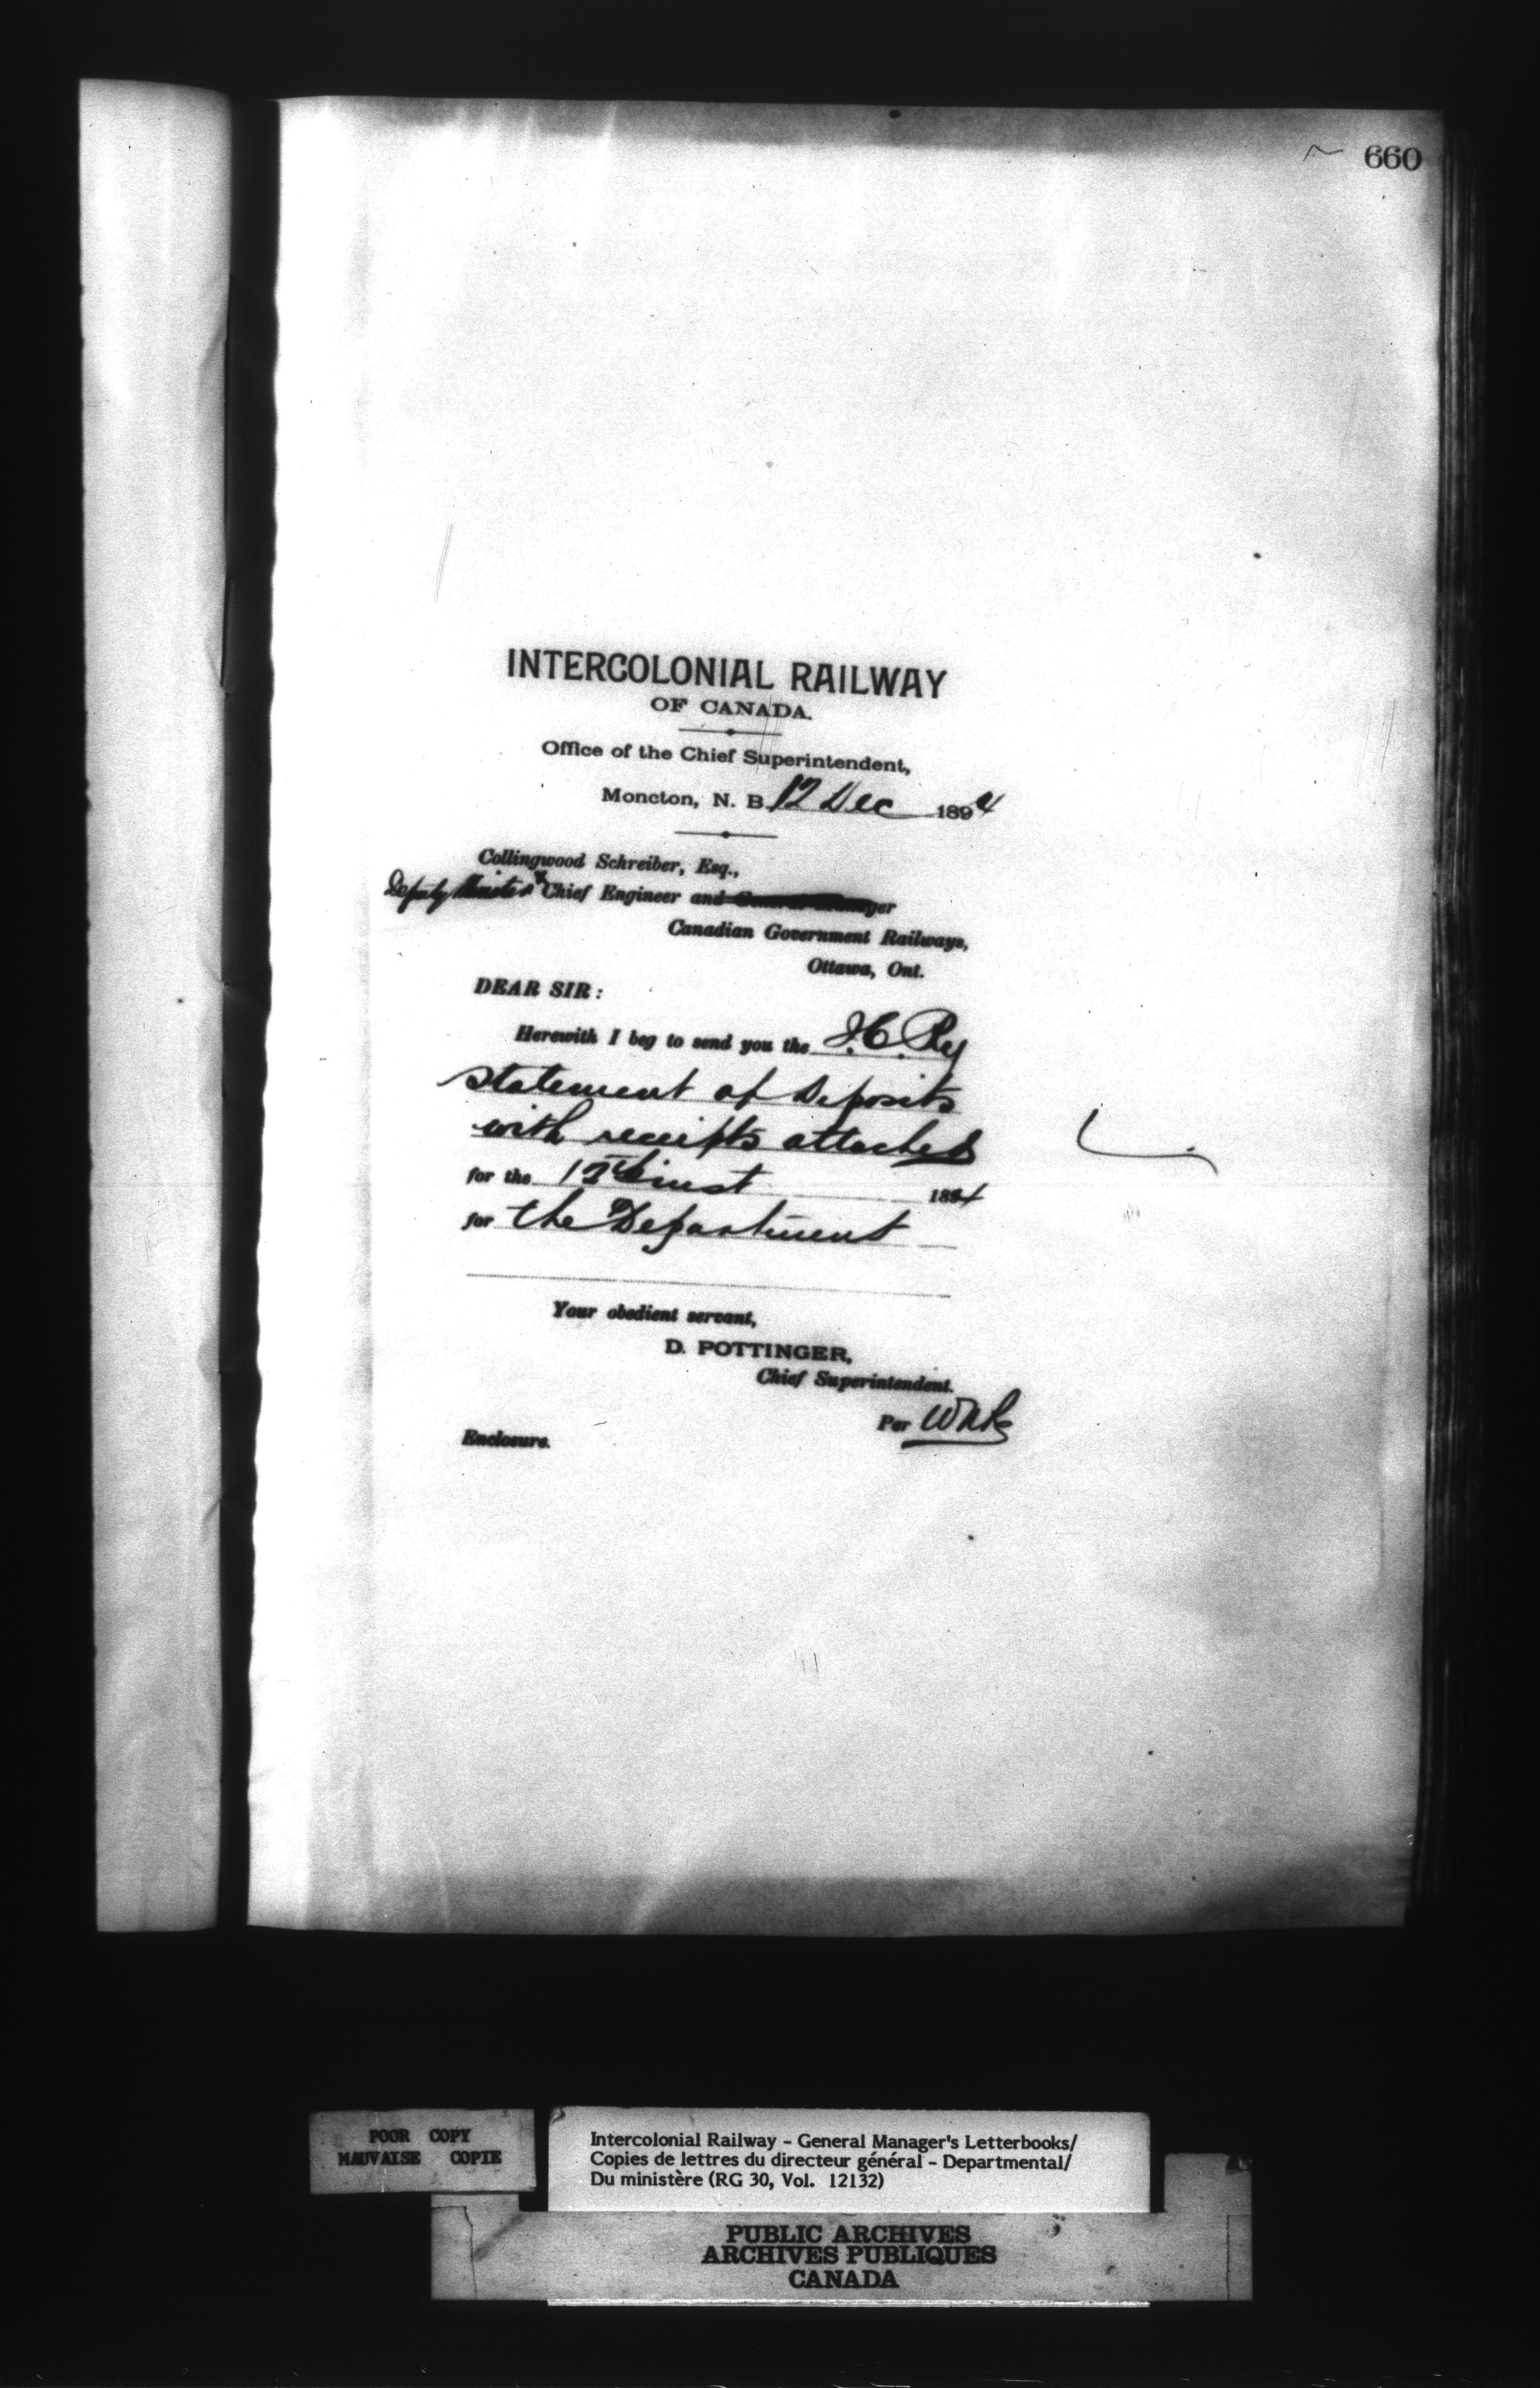 660
INTERCOLONIAL RAILWAY
OF CANADA.
Office of the Chief Superintendent,
Moncton, N. B. 12 Dec 1894
Collingwood Schreiber, Esq.,
Deputy Minister & Chief Engineer and General Manager
Canadian Government Railways,
Ottawa, Ont.
DEAR SIR:
Herewith I beg to send you the I.C. Ry
statement of Deposits
with receipts attached
for the 12th inst 1894
for the Department
Your obedient servant,
D. POTTINGER,
Chief Superintendent.
Per
Enclosure.
POOR COPY
MAUVAISE COPIE
Intercolonial Railway - General Manager's Letterbooks/
Copies de lettres du directeur général - Departmental/
Du ministère (RG 30, Vol. 12132)
PUBLIC ARCHIVES
ARCHIVES PUBLIQUES
CANADA